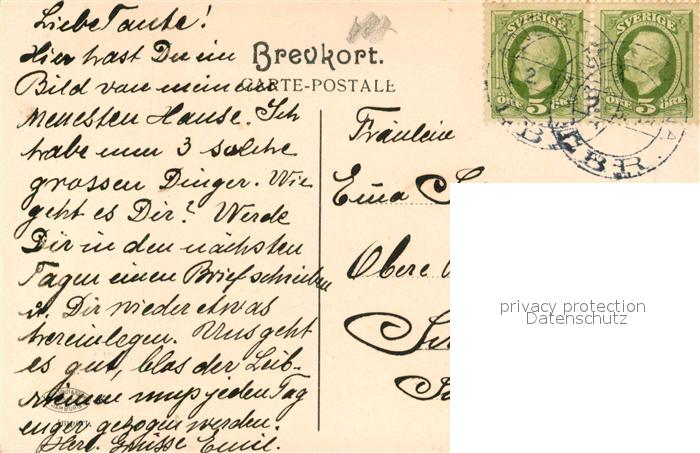 Liebe Tante!
Hier hast Du ein
Bild von meinem
neuesten Hause. Ich
habe nun 3 solche
grossen Dinger. Wie
geht es Dir? Werde
Dir in den nächsten
Tagen einen Brief schreiben
u. Dir wieder etwas
hereinlegen. Uns geht
es gut, blos der Leib-
riemen muss jeden Tag
enger gezogen werden.
Herzl. Grüsse Emil.
Brevkort.
CARTE-POSTALE
Fräulein
Obere
SVERIGE
ÖRE 5 ÖRE
SVERIGE
ÖRE 5 ÖRE
HAMBURG
privacy protection
Datenschutz